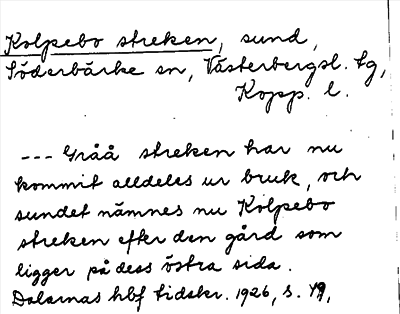 Kolpebo streken, sund,
Söderbärke sn, Västerbergsl. tg,
Kopp. l.
--- Gråå streken har nu
kommit alldeles ur bruk, och
sundet nämnes nu Kolpebo
streken efter den gård som
ligger på dess östra sida.
Dalarnas hbf tidskr. 1926, s. 49,